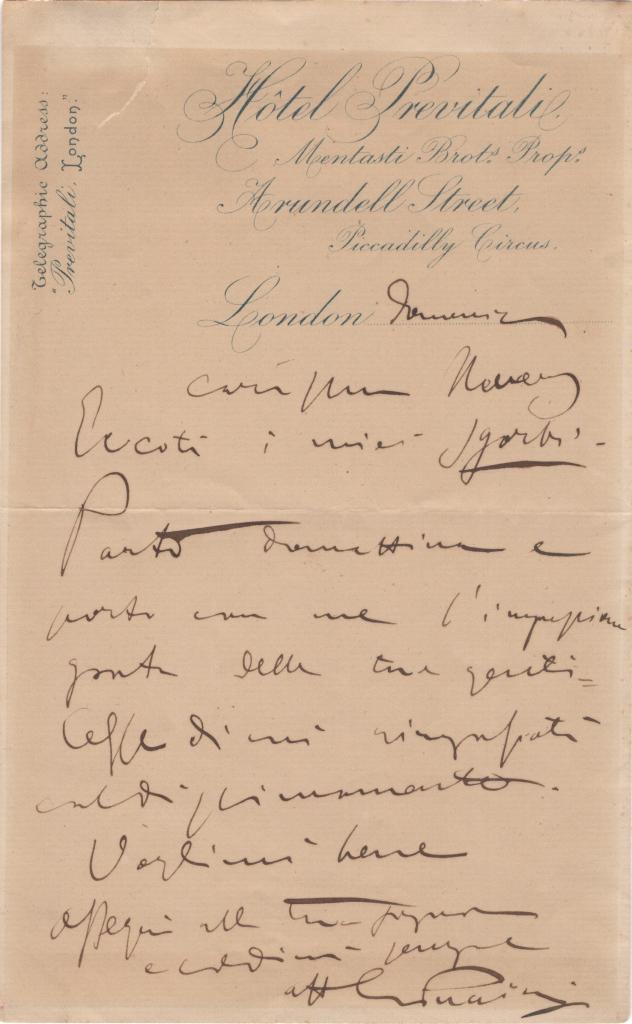 Telegraphic Address:
"Previtali, London."
Hôtel Previtali.
Mentasti Brots. Props.
Arundell Street,
Piccadilly Circus.
London Domenica
carissimo
Eccoti i miei sgorbi -
Parto domattina e
porto con me l'impressione
grata delle tue genti=
lezze di cui ringraziati
caldissimamente.
Vogliami bene
ossequi alla tua signora
e credimi sempre
aff